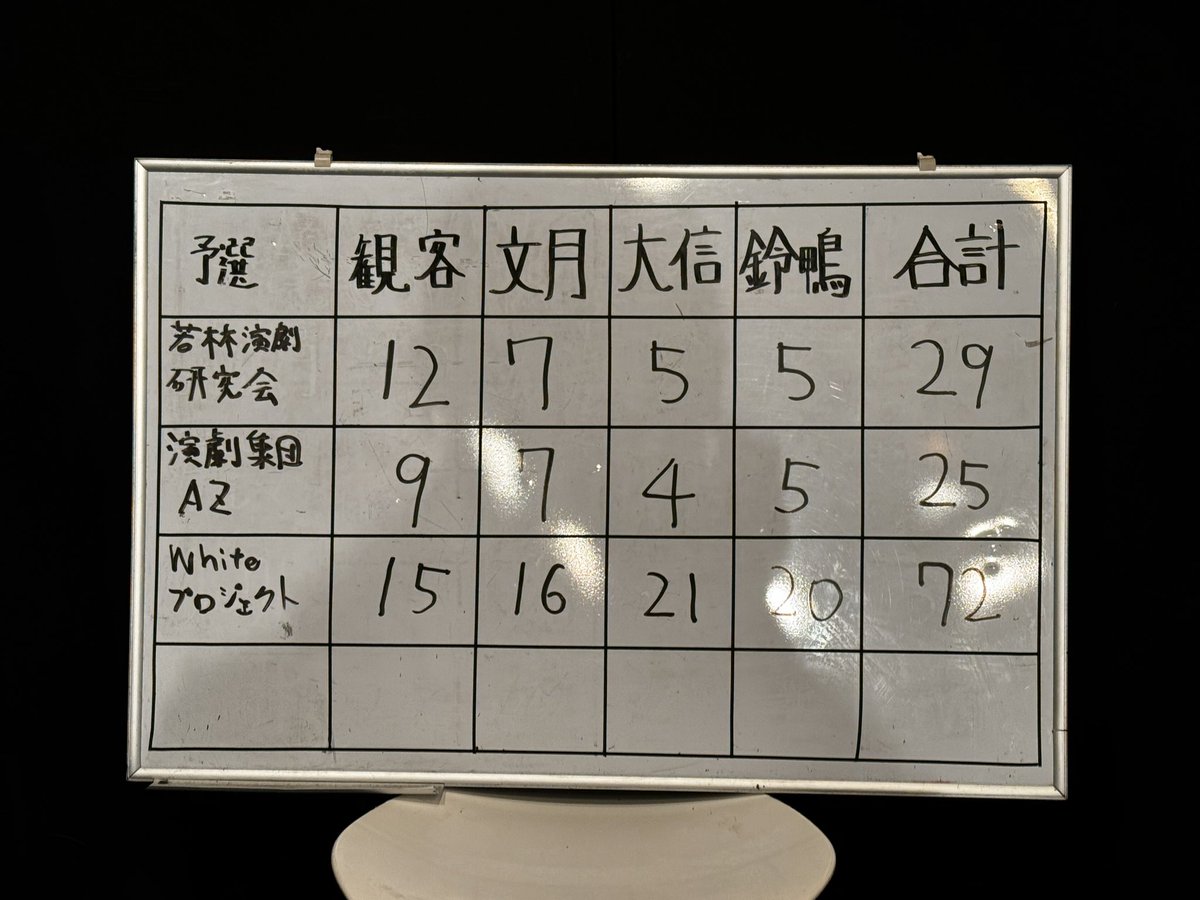 予選 観客 文月 大信 鈴鴨 合計
若林演劇
研究会 12 7 5 5 29
演劇集団
AZ 9 7 4 5 25
White
プロジェクト 15 16 21 20 72